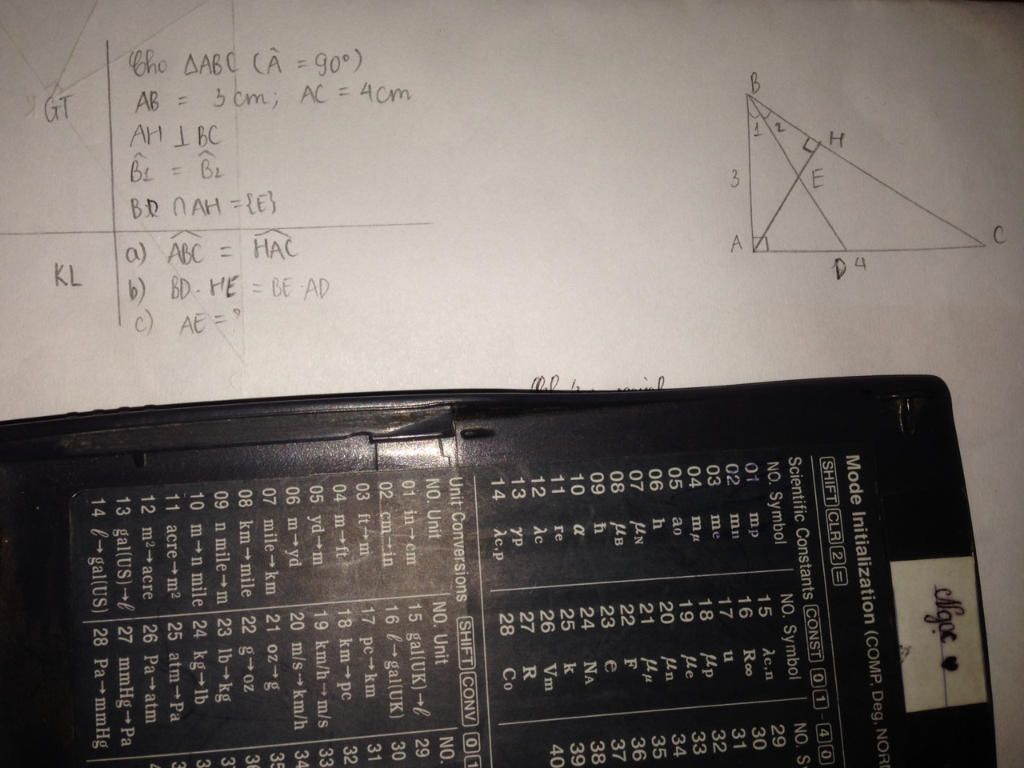 Cho ΔABC (Â = 90°)
GT
AB = 3 cm; AC = 4cm
AH ⊥ BC
B̂1 = B̂2
BD ∩ AH = {E}
KL
a) ABC = HAC
b) BD. HE = BE. AD
c) AE = ?
B
1 2
H
3
E
A
D 4
C
Mode Initialization (COMP, Deg, NOR
SHIFT CLR 2 =
Scientific Constants CONST 0 1 - 4 0
NO. Symbol
01 mp
02 mn
03 me
04 mμ
05 a0
06 h
07 μN
08 μB
09 ħ
10 α
11 re
12 λc
13 γp
14 λc.p
NO. Symbol
15 λc.n
16 R∞
17 u
18 μp
19 μe
20 μn
21 μμ
22 F
23 e
24 NA
25 k
26 Vm
27 R
28 C0
NO. S
29
30
31
32
33
34
35
36
37
38
39
40
Unit Conversions SHIFT CONV 0 1
NO. Unit
01 in→cm
02 cm→in
03 ft→m
04 m→ft
05 yd→m
06 m→yd
07 mile→km
08 km→mile
09 n mile→m
10 m→n mile
11 acre→m²
12 m²→acre
13 gal(US)→ℓ
14 ℓ→gal(US)
NO. Unit
15 gal(UK)→ℓ
16 ℓ→gal(UK)
17 pc→km
18 km→pc
19 km/h→m/s
20 m/s→km/h
21 oz→g
22 g→oz
23 lb→kg
24 kg→lb
25 atm→Pa
26 Pa→atm
27 mmHg→Pa
28 Pa→mmHg
NO.
29
30
31
32
33
34
35
36
Ngọc